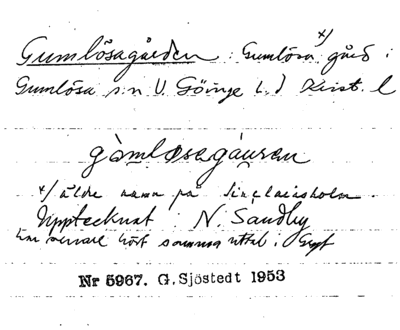 x/
Gumlösagården : Gumlösa gård i
Gumlösa s:n V. Göinge h. Krist. l
gòmløsagáuran
x/ äldre namn på Sinclairsholm.
Upptecknat i N. Sandby
har senare hört samma uttal i
Nr 5967. G. Sjöstedt 1953